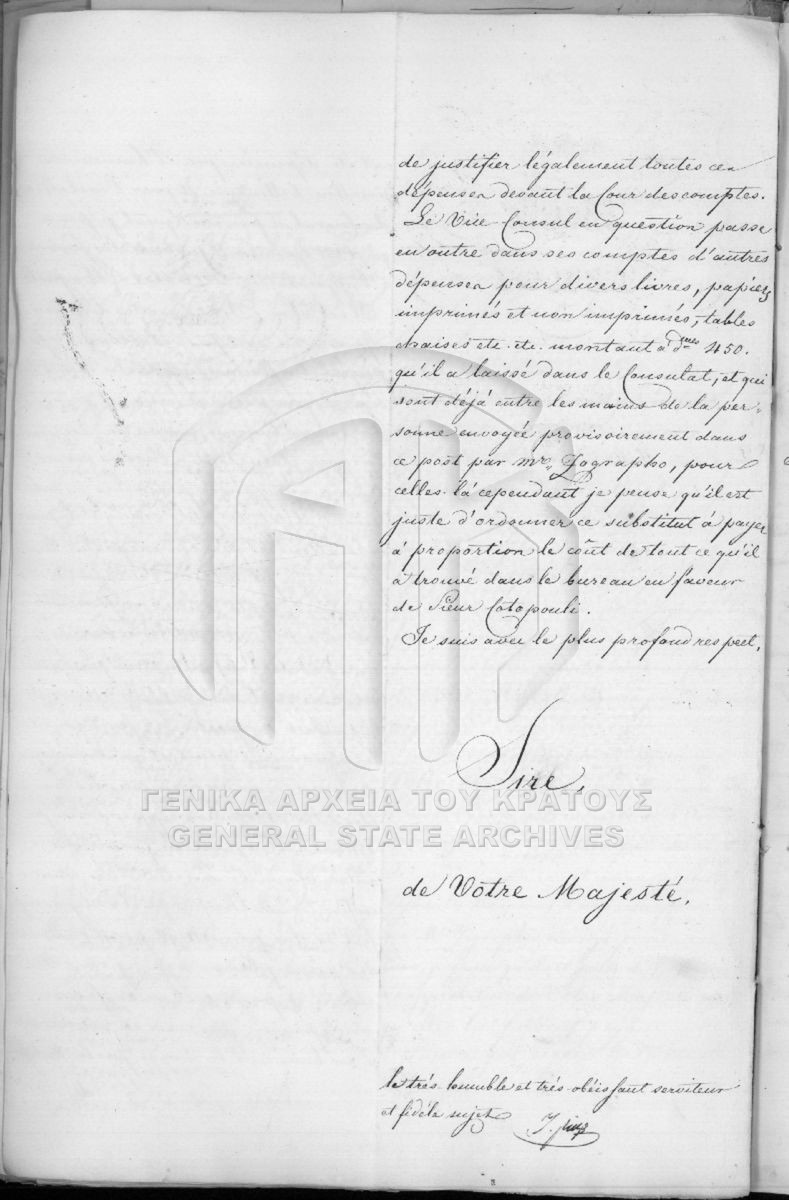 de justifier légalement toutes ces
dépenses devant la Cour des comptes.
Le Vice Consul en question passe
en outre dans ses comptes d'autres
dépenses pour divers livres, papiers
imprimés et non imprimés, tables
chaises etc. etc. montant à dmes 450.
qu'il a laissé dans le Consulat, et qui
sont déjà entre les mains de la per-
sonne envoyée provisoirement dans
ce post par mr. Zographo, pour
celles-là cependant je pense qu'il est
juste d'ordonner ce substitut à payer
à proportion le coût de tout ce qu'il
a trouvé dans le bureau en faveur
de Sieur Cotopouli.
Je suis avec le plus profond respect,
Sire,
ΓΕΝΙΚΑ ΑΡΧΕΙΑ ΤΟΥ ΚΡΑΤΟΥΣ
GENERAL STATE ARCHIVES
de Votre Majesté,
le très humble et très obéissant serviteur
et fidèle sujet